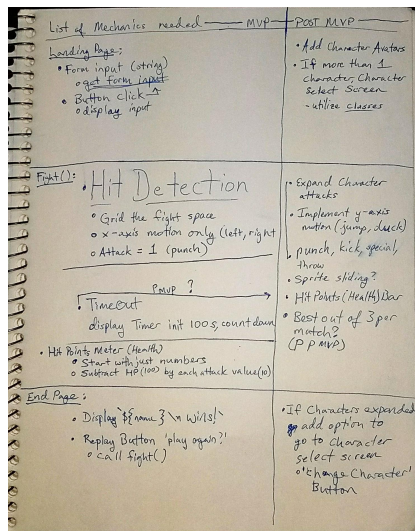 List of Mechanics needed — MVP — POST MVP
Landing Page:
• Form input (string)
o get form input
• Button click
o display input
• Add Character Avatars
• If more than 1
character, Character
Select Screen
- utilize classes
Fight():
• Hit Detection
o Grid the fight space
o x-axis motion only (left, right
o Attack = 1 (punch)
PMVP ?
• Timeout
display Timer init 100s, countdown
• Hit Points Meter (Health)
o Start with just numbers
o Subtract HP(100) by each attack value(10)
• Expand Character
attacks
• Implement y-axis
motion (jump, duck)
• punch, kick, special,
throw
• Sprite sliding?
• Hit Points (Health) Bar
• Best out of 3 per
match?
(PPMVP)
End Page:
• Display `${name} \n wins!`
• Replay Button 'play again?'
o call fight()
• If Characters expanded
add option to
go to character
select screen
o 'Change Character'
Button